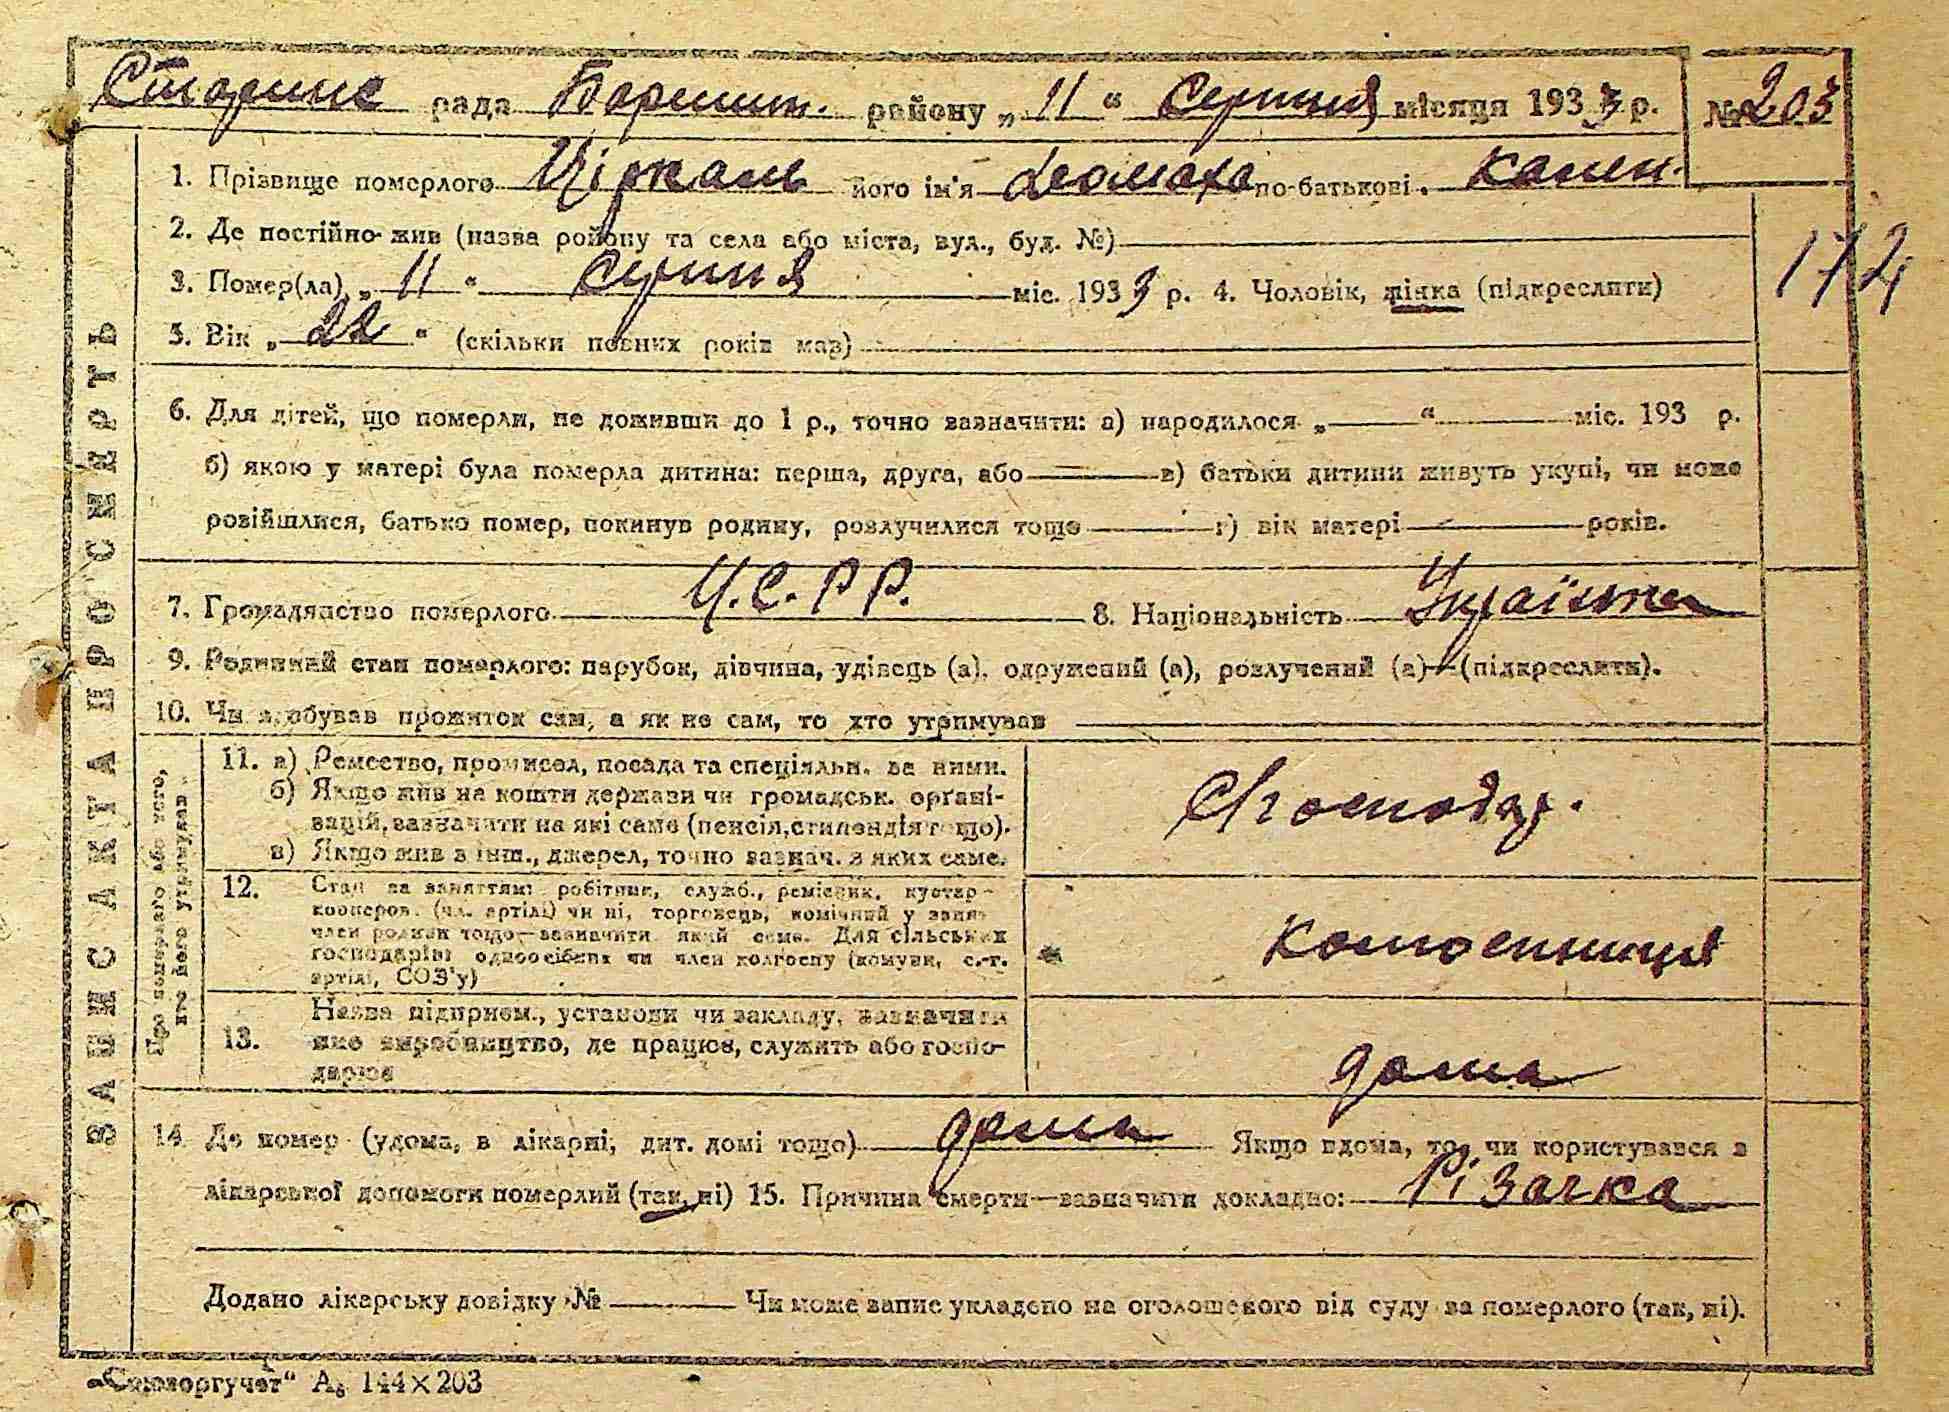 Старинс рада Боришп. району „ 11 “ Серпня місяця 1933 р. № 203
1. Прізвище померлого Ціркаль його ім'я Домаха по-батькові. Кален.
2. Де постійно жив (назва району та села або міста, вул., буд. №)
172
3. Помер(ла) „ 11 “ Серпня міс. 1933 р. 4. Чоловік, жінка (підкреслити)
5. Вік „ 22 “ (скільки повних років мав)
6. Для дітей, що померли, не доживши до 1 р., точно зазначити: а) народилося „ “ міс. 193 р.
б) якою у матері була померла дитина: перша, друга, або в) батьки дитини живуть укупі, чи може
розійшлися, батько помер, покинув родину, розлучилися тощо г) вік матері років.
7. Громадянство померлого У.С.Р.Р. 8. Національність Українка
9. Родинний стан померлого: парубок, дівчина, удівець (а), одружений (а), розлучений (а)—(підкреслити).
10. Чи здобував прожиток сам, а як не сам, то хто утримував
ЗАПИС АКТА ПРО СМЕРТЬ
Про померлого або того, хто його утримував
11. а) Ремество, промисел, посада та спеціяльн. за ними.
б) Якщо жив на кошти держави чи громадськ. органі-
зацій, зазначити на які саме (пенсія, стипендія тощо).
в) Якщо жив з інш., джерел, точно зазнач. з яких саме.
Сгосподар.
12. Стан за заняттям: робітник, служб., ремісник, кустар-
кооперов. (чл. артілі) чи ні, торговець, помічний у занят.
член родини тощо—зазначити який саме. Для сільських
господарів: одноосібник чи член колгоспу (комуни, с.-г.
артілі, СОЗ'у)
Колгоспниця
13. Назва підприєм., установи чи закладу, зазначити
яке виробництво, де працює, служить або госпо-
дарює
дома
14. Де помер (удома, в лікарні, дит. домі тощо) дома Якщо вдома, то чи користувався з
лікарської допомоги померлий (так, ні) 15. Причина смерти—зазначити докладно: Різачка
Додано лікарську довідку № Чи може запис укладено на оголошеного від суду за померлого (так, ні).
„Союзоргучет“ А₅ 144×203